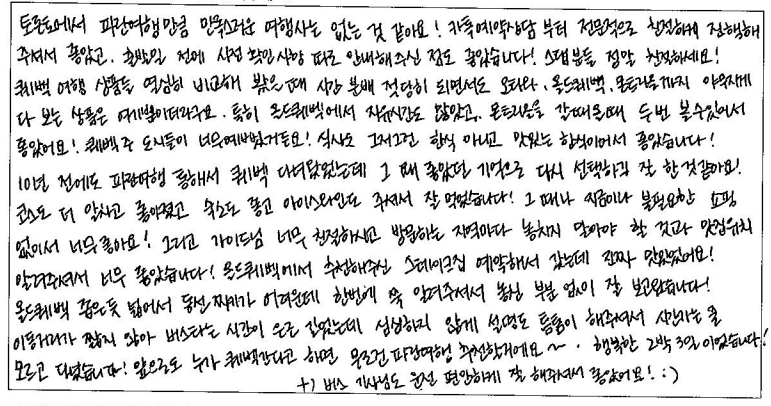 토론토에서 파란여행만큼 만족스러운 여행사는 없는 것 같아요! 카톡예약상담 부터 전문적으로 친절하게 잘해해
주셔서 좋았고, 출발일 전에 사전 확인사항 따로 안내해주신 점도 좋았습니다! 스탭분들 정말 친절하세요!
퀘벡 여행 상품들 열심히 비교해 봤을때 시간 분배 적당히 되면서도 오타와, 올드퀘벡, 몬트리올까지 야무지게
다 보는 상품은 여기뿐이더라구요. 특히 올드퀘벡에서 자유시간도 많았고, 몬트리올을 갈때올때 두번 볼수있어서
좋았어요! 퀘벡주 도시들이 너무예뻤거든요! 식사도 그저그런 한식 아니고 맛있는 한식이어서 좋았습니다!
10년 전에도 파란여행 통해서 퀘벡 다녀왔었는데 그 때 좋았던 기억으로 다시 선택하길 잘 한것같아요!
코스도 더 알차고 좋아졌고 숙소도 좋고 아이스와인도 주셔서 잘 먹었습니다! 그 때나 지금이나 불필요한 쇼핑
없어서 너무좋아요! 그리고 가이드님 너무 친절하시고 방문하는 지역마다 놓치지 말아야 할 것과 맛집위치
알려주셔서 너무 좋았습니다! 올드퀘벡에서 추천해주신 스테이크집 예약해서 갔는데 진짜 맛있었어요!
올드퀘벡 좁은듯 넓어서 동선짜기가 어려운데 한번에 쭉 알려주셔서 놓친 부분 없이 잘 보고왔습니다!
이동거리가 짧지 않아 버스타는 시간이 은근 길었는데 심심하지 않게 설명도 틈틈이 해주셔서 시간가는 줄
모르고 다녔습니다! 앞으로도 누가 퀘벡간다고 하면 무조건 파란여행 추천할거에요~. 행복한 2박 3일 이었습니다!
+) 버스 기사님도 운전 편안하게 잘 해주셔서 좋았어요! :)